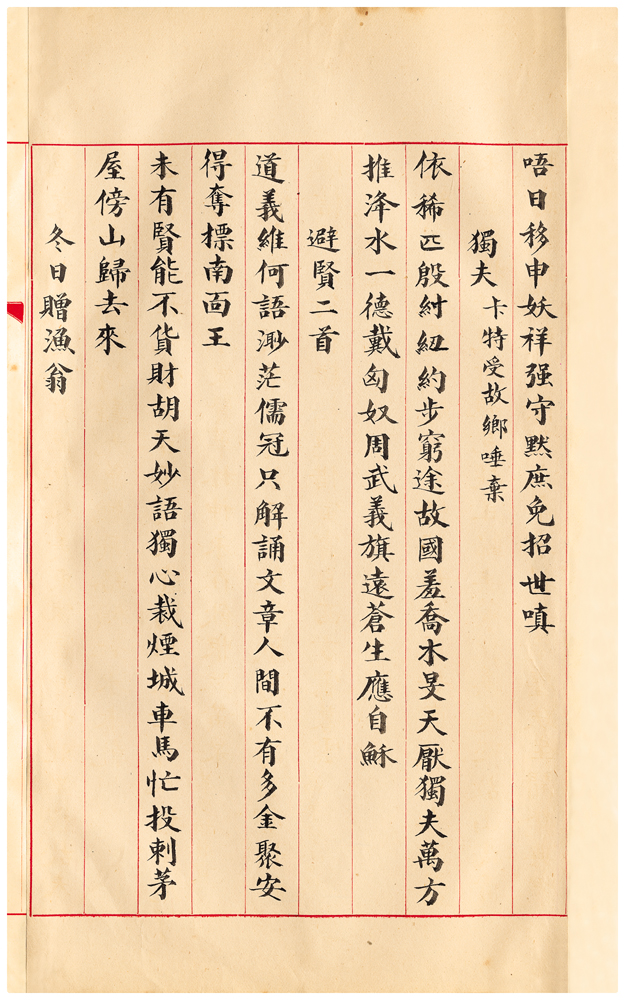 唔日移申妖祥强守默庶免招世嗔
獨夫 卡特受故鄉唾棄
依稀匹殷紂紐約步窮途故國羞喬木旻天厭獨夫萬方
推洚水一德戴匈奴周武義旗遠蒼生應自穌
避賢二首
道義維何語渺茫儒冠只解誦文章人間不有多金聚安
得奪標南面王
未有賢能不貨財胡天妙語獨心裁煙城車馬忙投刺茅
屋傍山歸去來
冬日贈漁翁